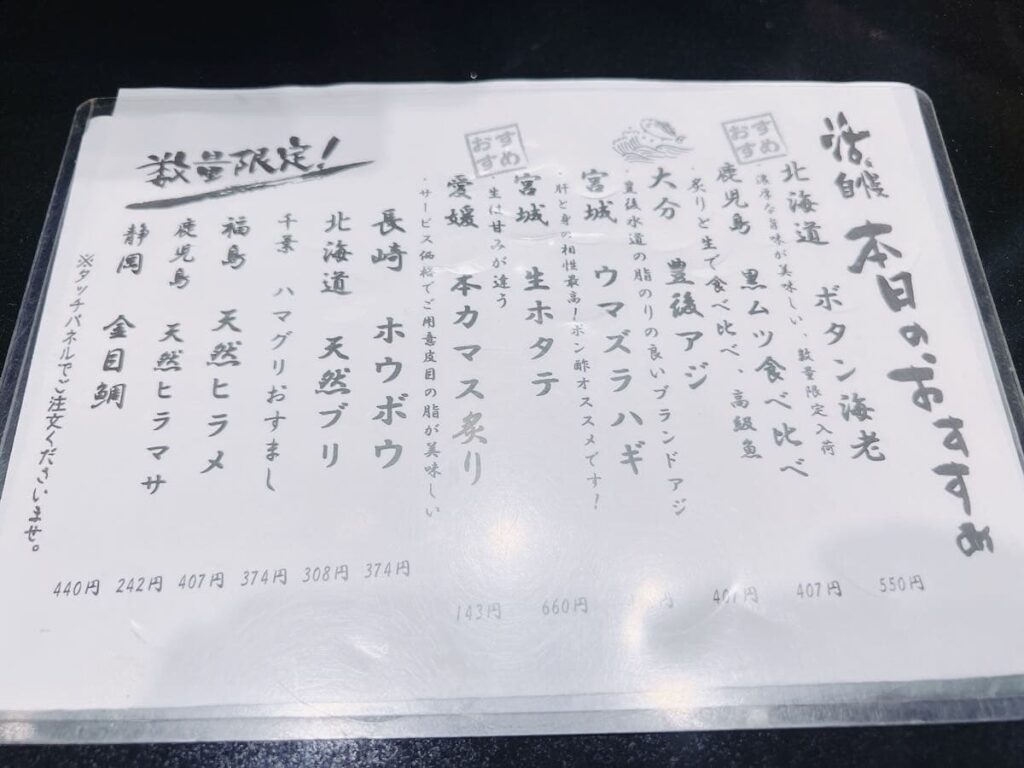 自慢
本日のおすすめ
北海道 ボタン海老 550円
濃厚な旨味が美味しい、数量限定入荷
おすすめ
鹿児島 黒ムツ食べ比べ 407円
炙りと生で食べ比べ、高級魚
大分 豊後アジ 407円
豊後水道の脂のりの良いブランドアジ
宮城 ウマズラハギ 円
・肝と身の相性最高！ポン酢オススメです！
宮城 生ホタテ 660円
・生は甘みが違う
おすすめ
愛媛 本カマス炙り 143円
・サービス価格でご用意皮目の脂が美味しい
数量限定！
長崎 ホウボウ 374円
北海道 天然ブリ 308円
千葉 ハマグリおすまし 374円
福島 天然ヒラメ 407円
鹿児島 天然ヒラマサ 242円
静岡 金目鯛 440円
※タッチパネルでご注文くださいませ。